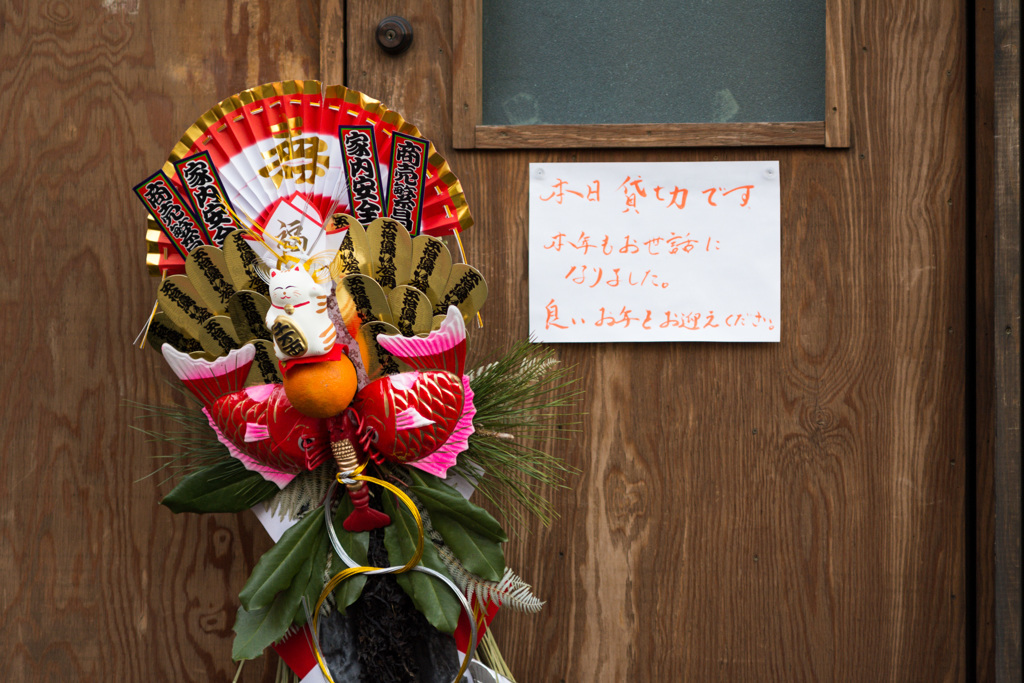 商売繁昌
家内安全
家内安全
商売繁昌
福
本日貸切です
本年もお世話に
なりました。
良いお年をお迎えください。